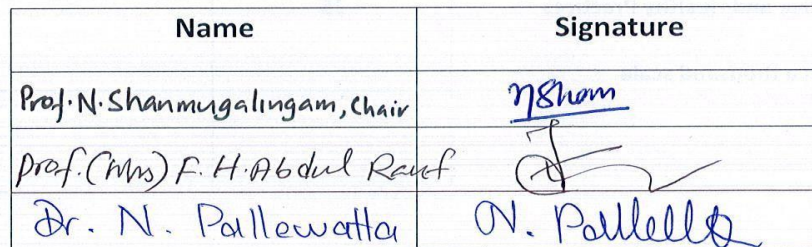 Name Signature
Prof. N. Shanmugalingam, Chair NSham
Prof. (Mrs) F. H. Abdul Rauf
Dr. N. Pallewatta N. Pallewatta